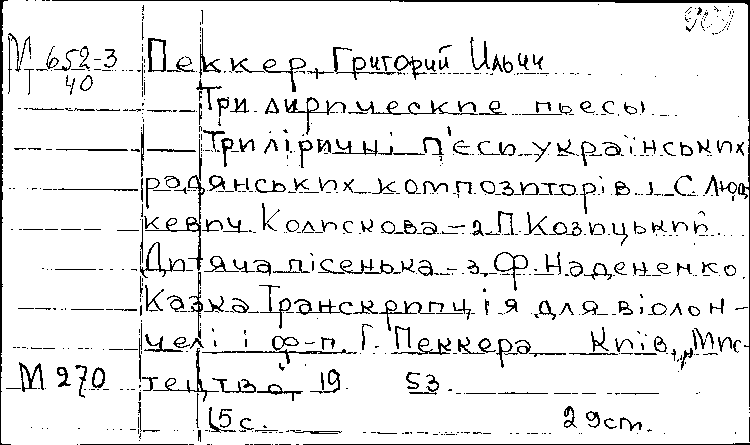 М 652-3
40
Пеккер, Григорий Ильич
Три лирические пьесы
Три ліричні п'єси українських
радянських композиторів 1 С Люд
кевич Колискова – 2 П Козицький
Дитяча пісенька – 3, Ф. Надененко
Казка Транскрипція для віолон-
челі і ф-п. Г. Пеккера Київ, „Мис-
М 270
тецтво, 19 53.
15 с. 29 cm.